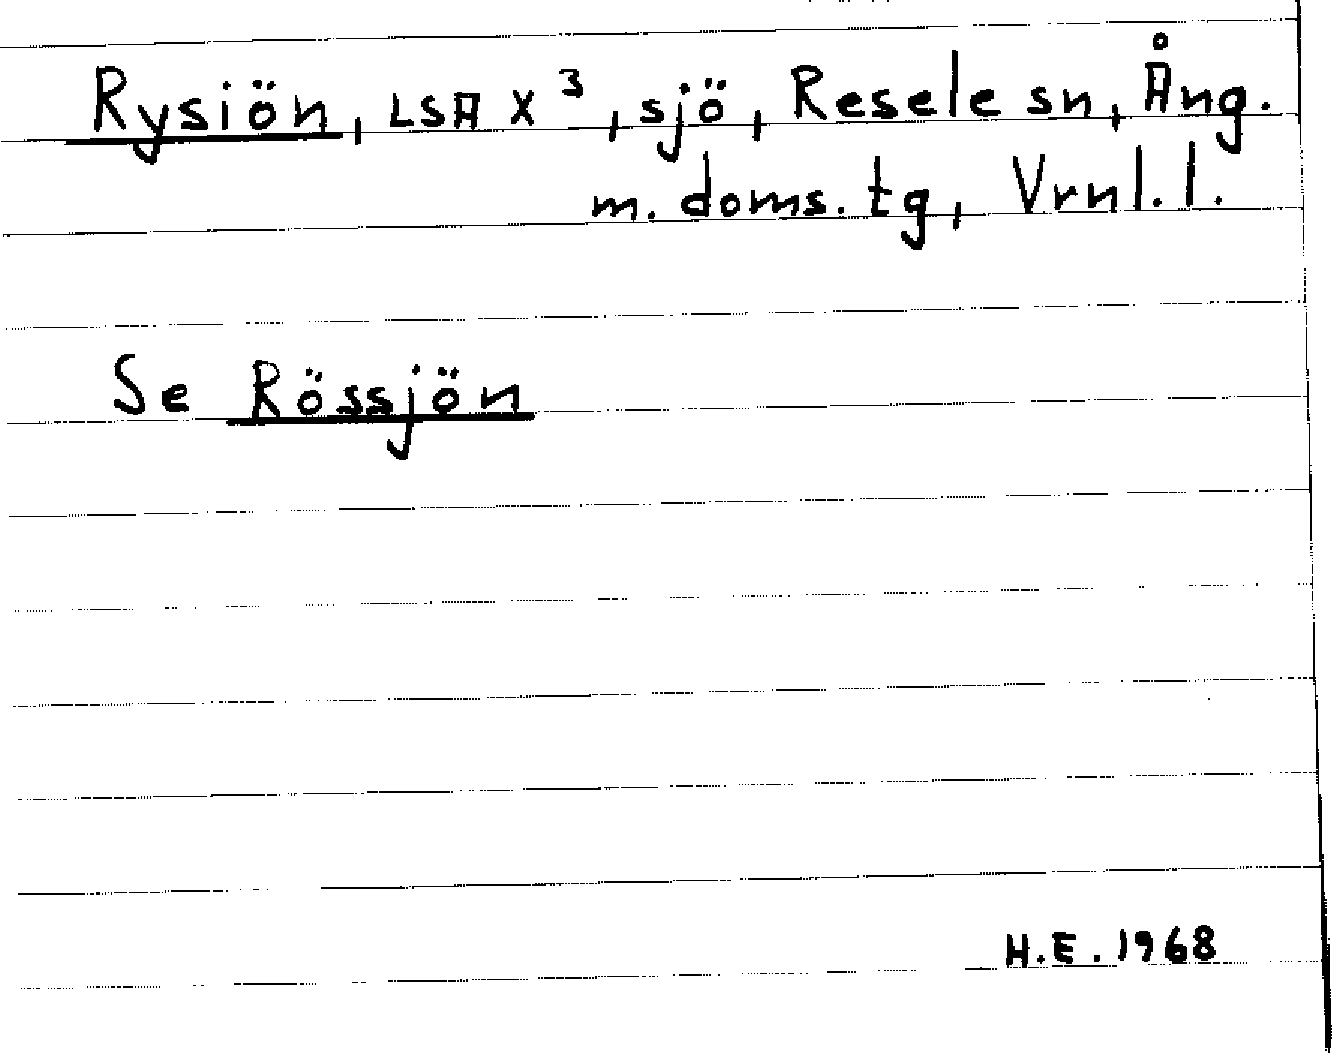 Rysiön, LSA X³, sjö, Resele sn, Ång.
m. doms. tg, Vrnl. l.
Se Rössjön
H.E. 1968